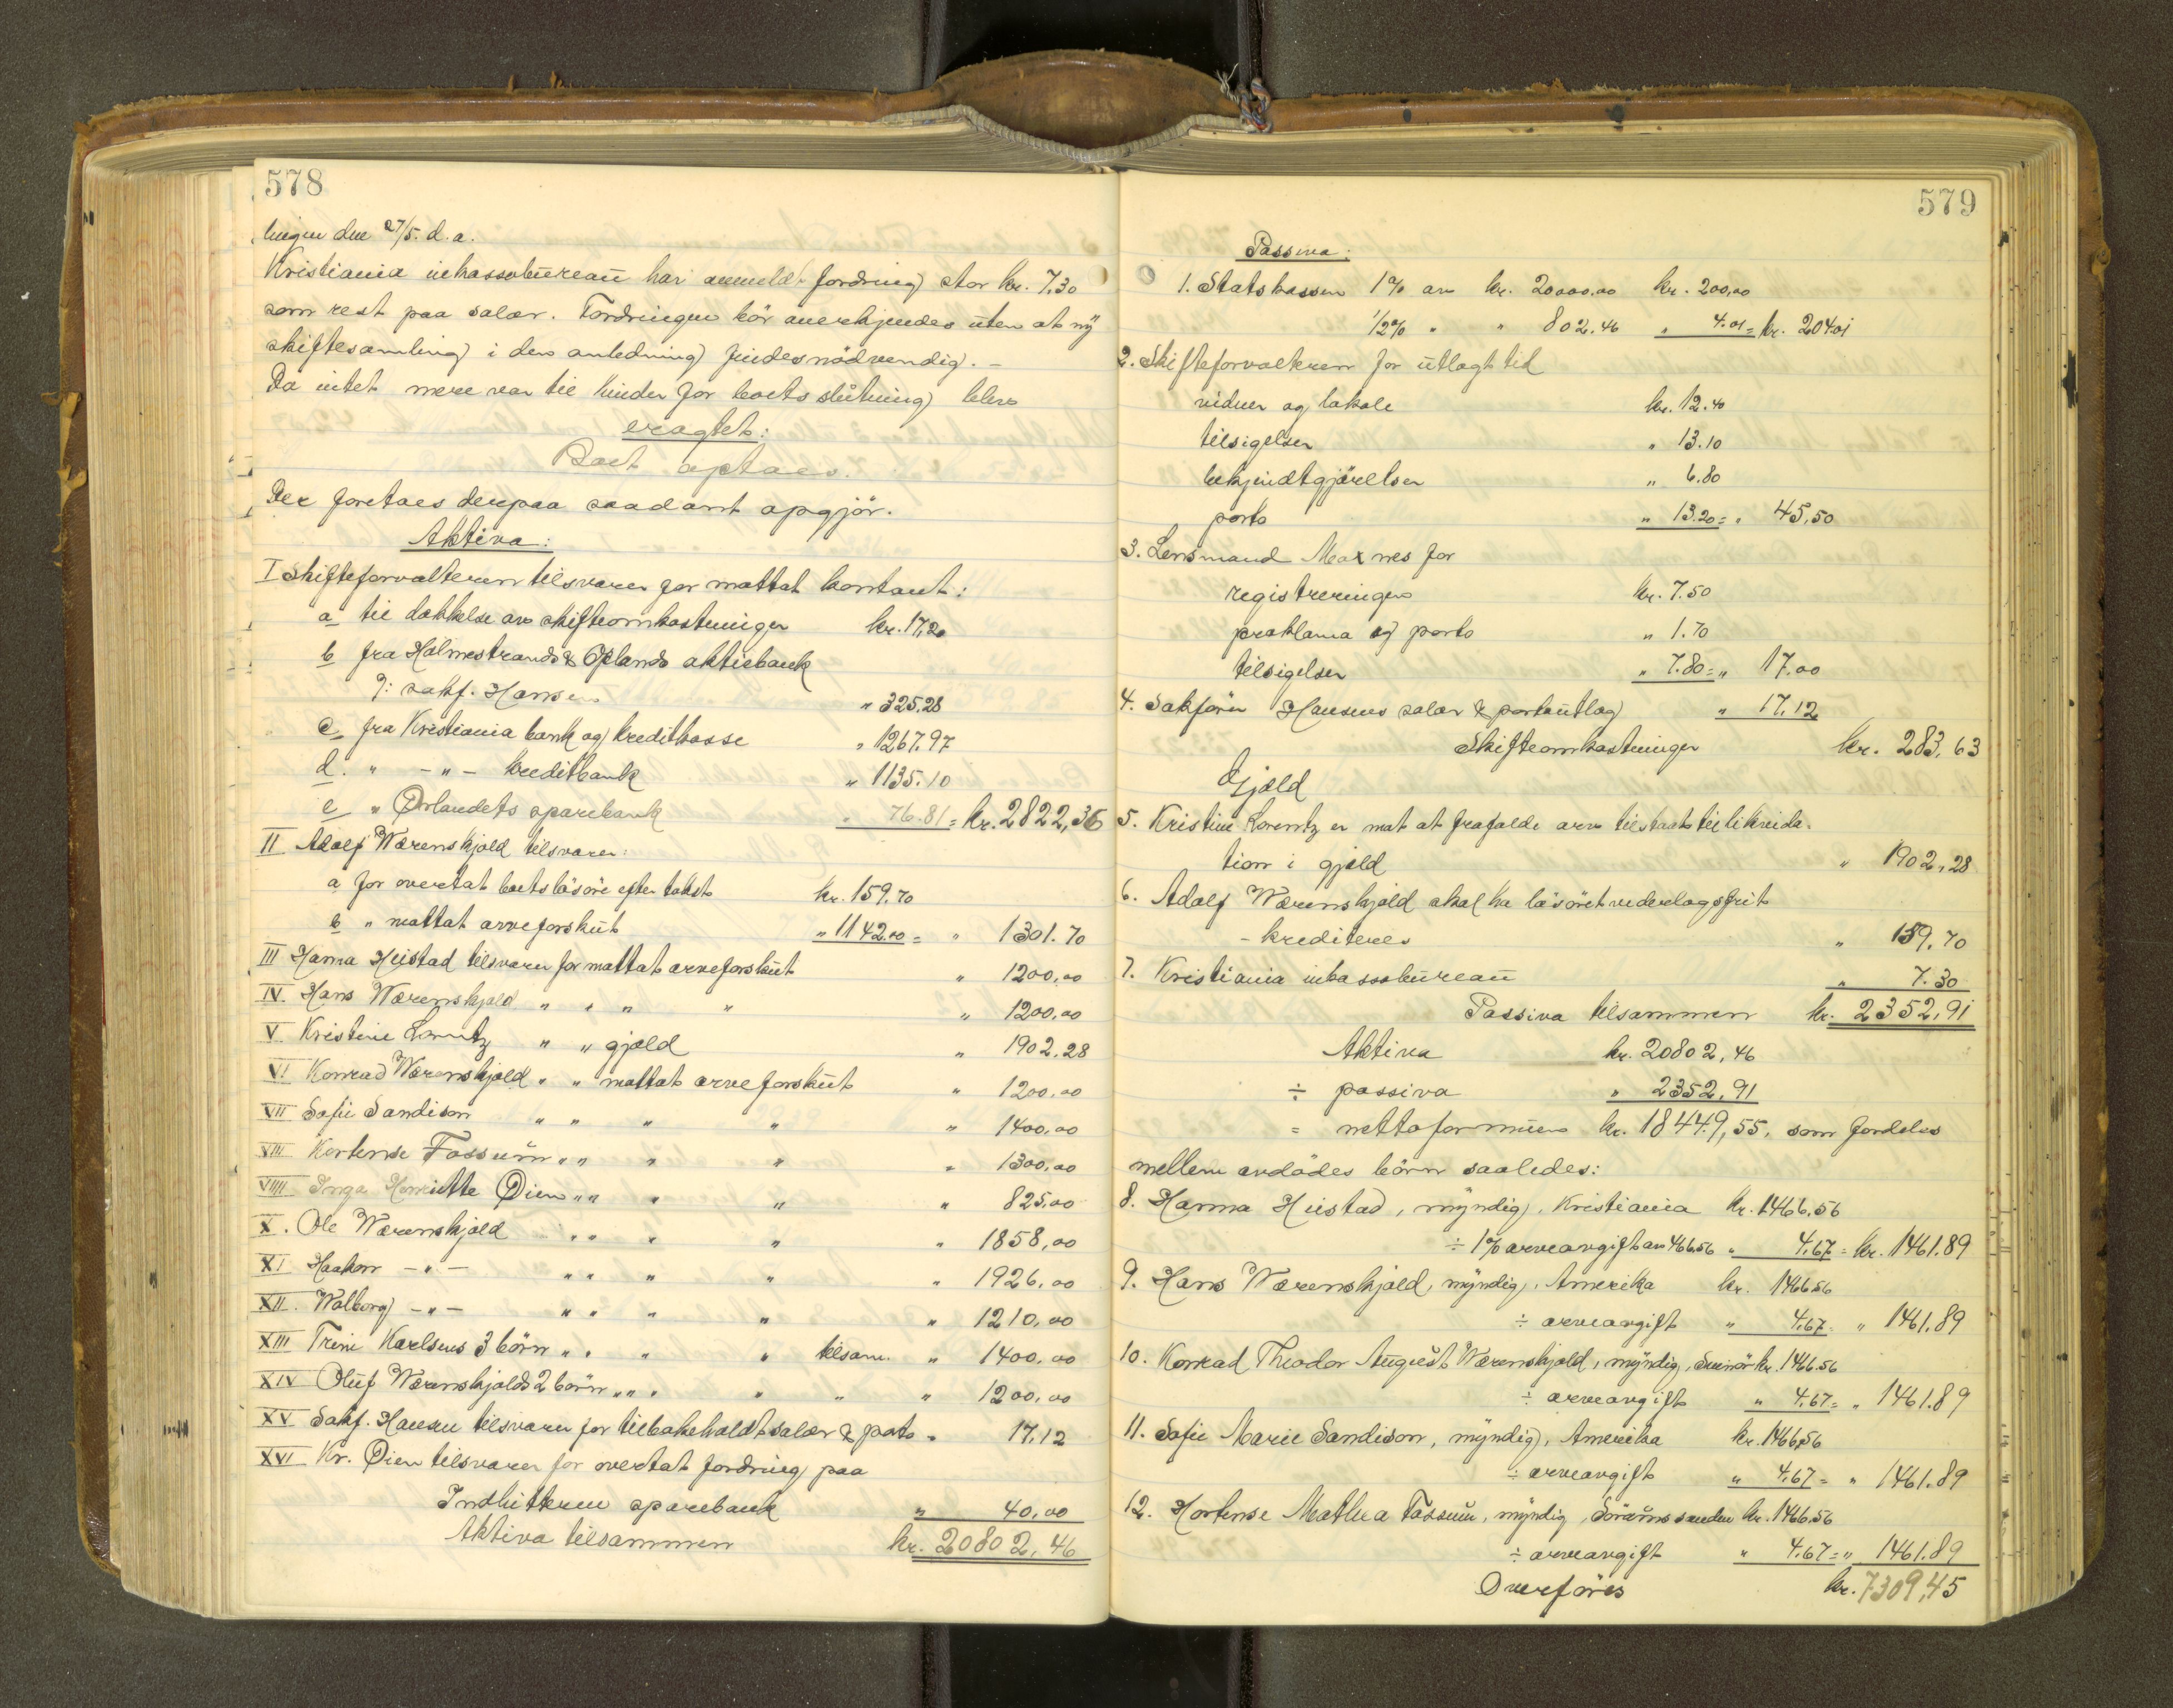 578
lingen den 27/5. d.a.
Kristiania inkassobureau har anmeldt fordring stor kr. 7,30
som rest paa salær. Fordringen bör anerkjendes uten at ny
skiftesamling i den anledning findes nödvendig. –
Da intet mere var til hinder for boets slutning blev
eragtet:
Boet optaes.
Der foretaes derpaa saadant opgjör.
Aktiva:
I Skifteforvalteren tilsvarer for mottat kontant:
a til dækkelse av skifteomkostninger kr. 17,20
b fra Holmestrand & Oplands aktiebank
ɔ: sakf. Hansen " 325,28
c fra Kristiania bank og kreditkasse " 1267,97
d. " – " – kreditbank " 1135.10
e " Ørlandets sparebank " 76.81 = kr. 2822,36
II Adolf Wærenskjold tilsvarer:
a for overtat boets lösöre efter takst kr. 159.70
b " mottat arveforskut " 1142.00 = " 1301.70
III Hanna Hustad tilsvarer for mottat arveforskut " 1200,00
IV. Hans Wærenskjold " " " " " 1200,00
V Kristine Lorentz " " gjæld " 1902.28
VI Konrad Wærenskjold " " mottat arveforskut " 1200,00
VII Sofie Sandison " " " " " 1400,00
VIII Hortense Fossum " " " " " 1300,00
VIIII Inga Henriette Øien " " " " " 825,00
X. Ole Wærenskjold " " " " " 1858,00
XI Haakon – " – " " " " " 1926,00
XII. Walborg – " – " " " " " 1210,00
XIII Trine Karlsens 3 börn " " " " tilsam. " 1400,00
XIV Oluf Wærenskjolds 2 börn " " " " " " 1200,00
XV Sakf. Hansen tilsvarer for tilbakeholdt salær & porto " 17,12
XVI Kr. Øien tilsvarer for overtat fordring paa
Indhitteren sparebank " 40,00
Aktiva tilsammen kr. 20802,46
579
Passiva:
1. Statskassen 1% av kr. 20000,00 kr. 200,00
1/2% " " 802.46 " 4.01 = kr. 204.01
2. Skifteforvalteren for utlagt til
vidner og lokale kr. 12.40
tilsigelser " 13.10
bekjendtgjörelser " 6.80
porto " 13.20 = " 45,50
3. Lensmand Moxnes for
registreringen kr. 7.50
proklama og porto " 1.70
tilsigelser " 7.80 = " 17.00
4. Sakförer Hansens salær & portoutlæg " 17,12
Skifteomkostninger kr. 283,63
Gjæld
5. Kristine Lorentz er mot at frafalde arv tilstaat til likvida-
tion i gjæld " 1902,28
6. Adolf Wærenskjold skal ha lösöret vederlagsfrit
– krediteres " 159,70
7. Kristiania inkassobureau " 7.30
Passiva tilsammen kr. 2352,91
Aktiva kr. 20802,46
÷ passiva " 2352,91
= nettoformuen kr. 18449,55, som fordeles
mellem avdödes börn saaledes:
8. Hanna Hustad, myndig, Kristiania kr. 1466,56
÷ 1% arveavgift av 466.56 " 4.67 = kr. 1461.89
9. Hans Wærenskjold, myndig, Amerika kr. 1466.56
÷ arveavgift " 4.67 " 1461.89
10. Konrad Theodor August Wærenskjold, myndig, kr. 1466.56
÷ arveavgift " 4.67 = " 1461.89
11. Sofie Marie Sandison, myndig, Amerika kr. 1466,56
÷ arveavgift " 4.67 = " 1461.89
12. Hortense Mathea Fossum, myndig, Söraunssanden kr. 1466.56
÷ arveavgift " 4.67 = " 1461.89
Overföres kr. 7309,45